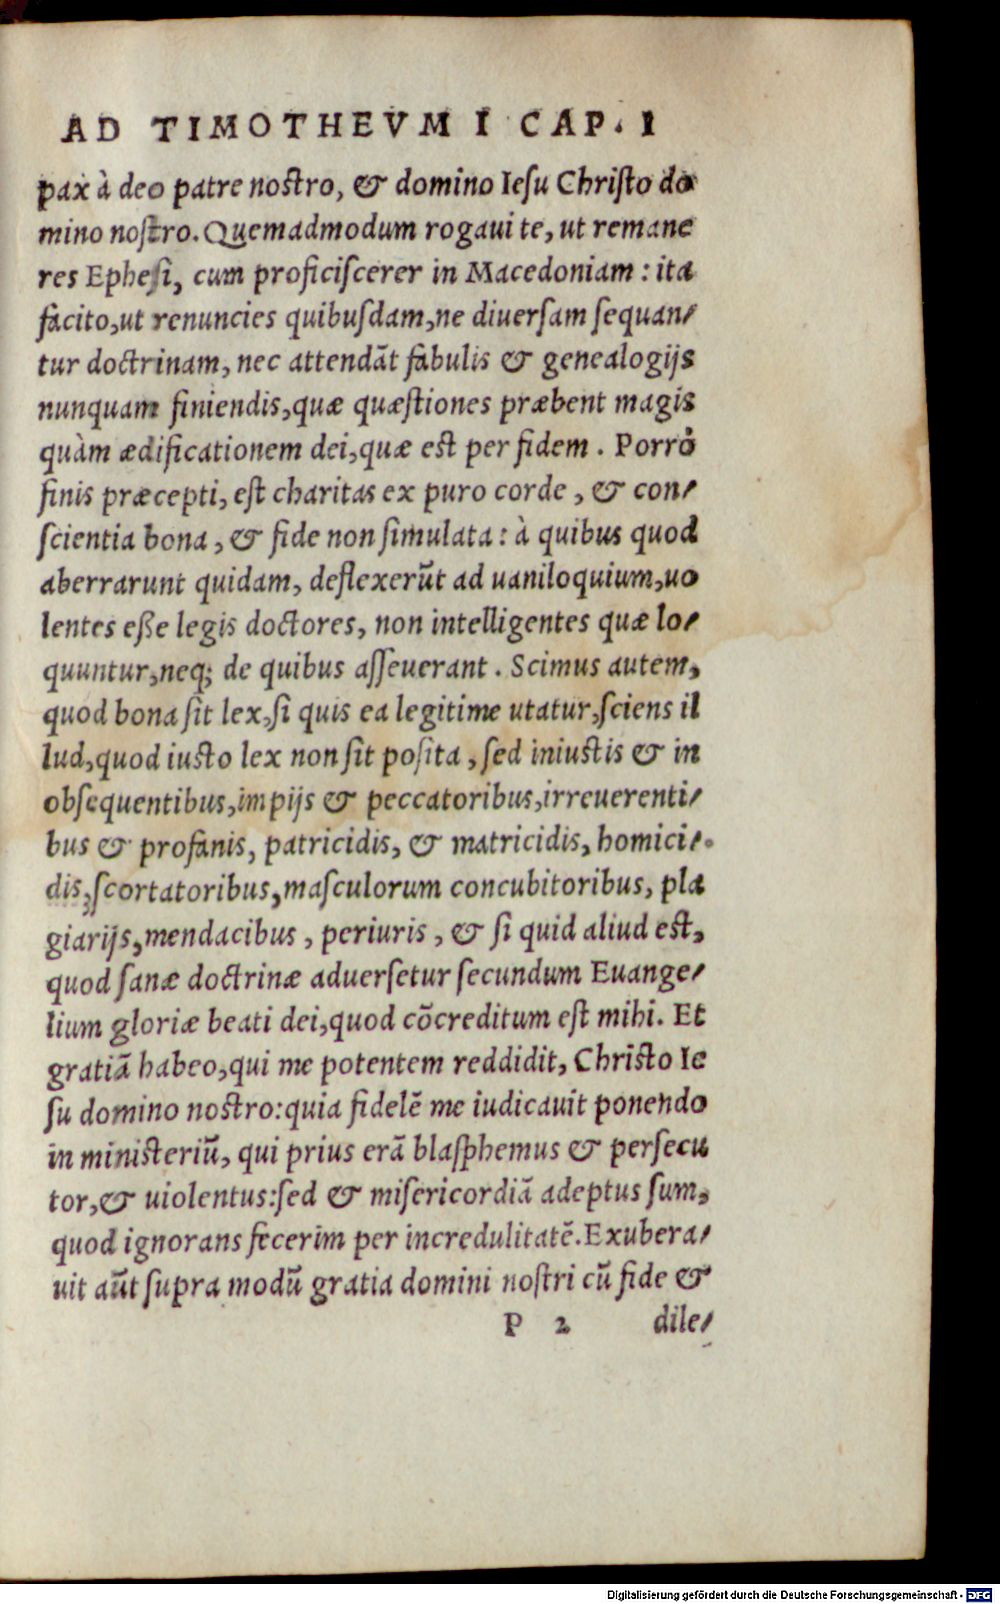 AD TIMOTHEVM I CAP. I
pax à deo patre nostro, & domino Iesu Christo do
mino nostro. Quemadmodum rogaui te, ut remane
res Ephesi, cum proficiscerer in Macedoniam : ita
facito, ut renuncies quibusdam, ne diuersam sequan-
tur doctrinam, nec attendãt fabulis & genealogijs
nunquam finiendis, quæ quæstiones præbent magis
quàm ædificationem dei, quæ est per fidem . Porrò
finis præcepti, est charitas ex puro corde , & con-
scientia bona , & fide non simulata : à quibus quod
aberrarunt quidam, deflexerũt ad uaniloquium, uo
lentes eße legis doctores, non intelligentes quæ lo-
quuntur, neq; de quibus asseuerant . Scimus autem,
quod bona sit lex, si quis ea legitime utatur, sciens il
lud, quod iusto lex non sit posita , sed iniustis & in
obsequentibus, impijs & peccatoribus, irreuerenti-
bus & profanis, patricidis, & matricidis, homici-
dis, scortatoribus, masculorum concubitoribus, pla
giarijs, mendacibus , periuris , & si quid aliud est,
quod sanæ doctrinæ aduersetur secundum Euange-
lium gloriæ beati dei, quod cõcreditum est mihi. Et
gratiã habeo, qui me potentem reddidit, Christo Ie
su domino nostro: quia fidelẽ me iudicauit ponendo
in ministeriũ, qui prius erã blasphemus & persecu
tor, & uiolentus: sed & misericordiã adeptus sum,
quod ignorans fecerim per incredulitatẽ. Exubera-
uit aũt supra modũ gratia domini nostri cũ fide &
P 2 dile-
Digitalisierung gefördert durch die Deutsche Forschungsgemeinschaft - DFG